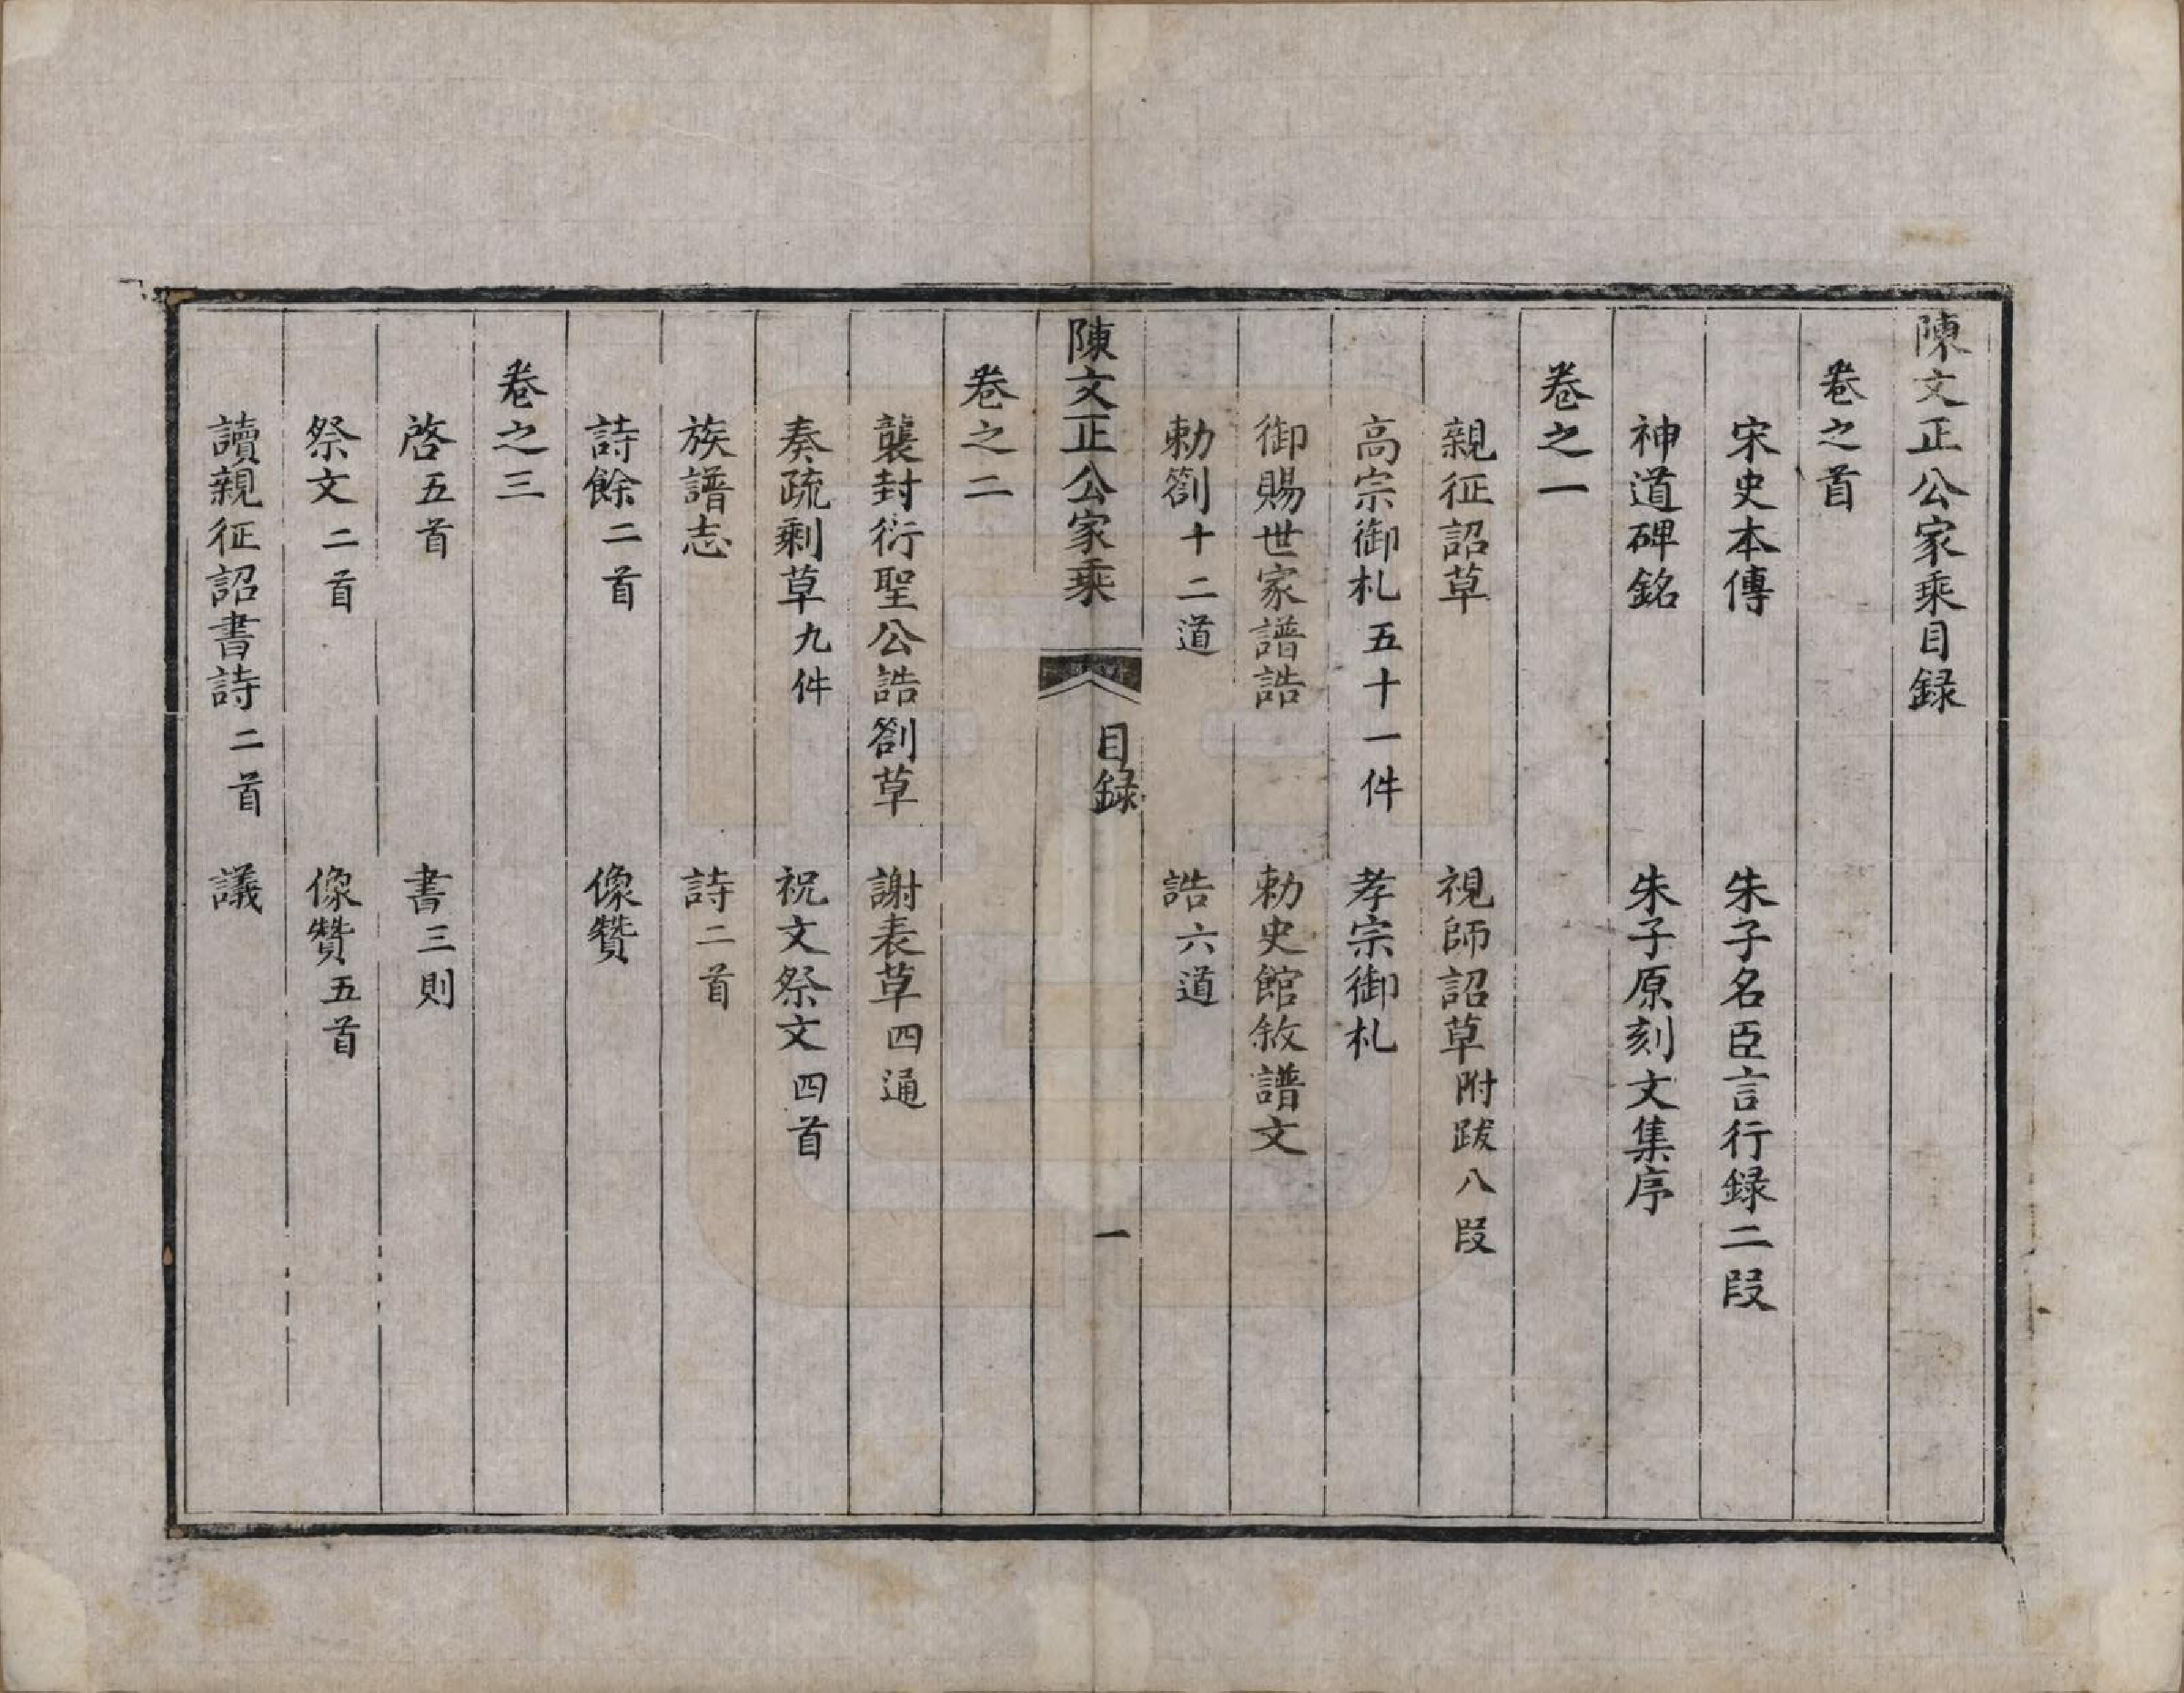 陳文正公家乘目録
卷之首
宋史本傳　朱子名臣言行録二段
神道碑銘　朱子原刻文集序
卷之一
親征詔草　視師詔草附跋八段
高宗御札五十一件　孝宗御札
御賜世家譜誥　勅史館敘譜文
勅劄十二道　誥六道
陳文正公家乘　目録　一
卷之二
襲封衍聖公誥劄草　謝表草四通
奏疏剩草九件　祝文祭文四首
族譜志　詩二首
詩餘二首　像贊
卷之三
啓五首　書三則
祭文二首　像贊五首
讀親征詔書詩二首　議